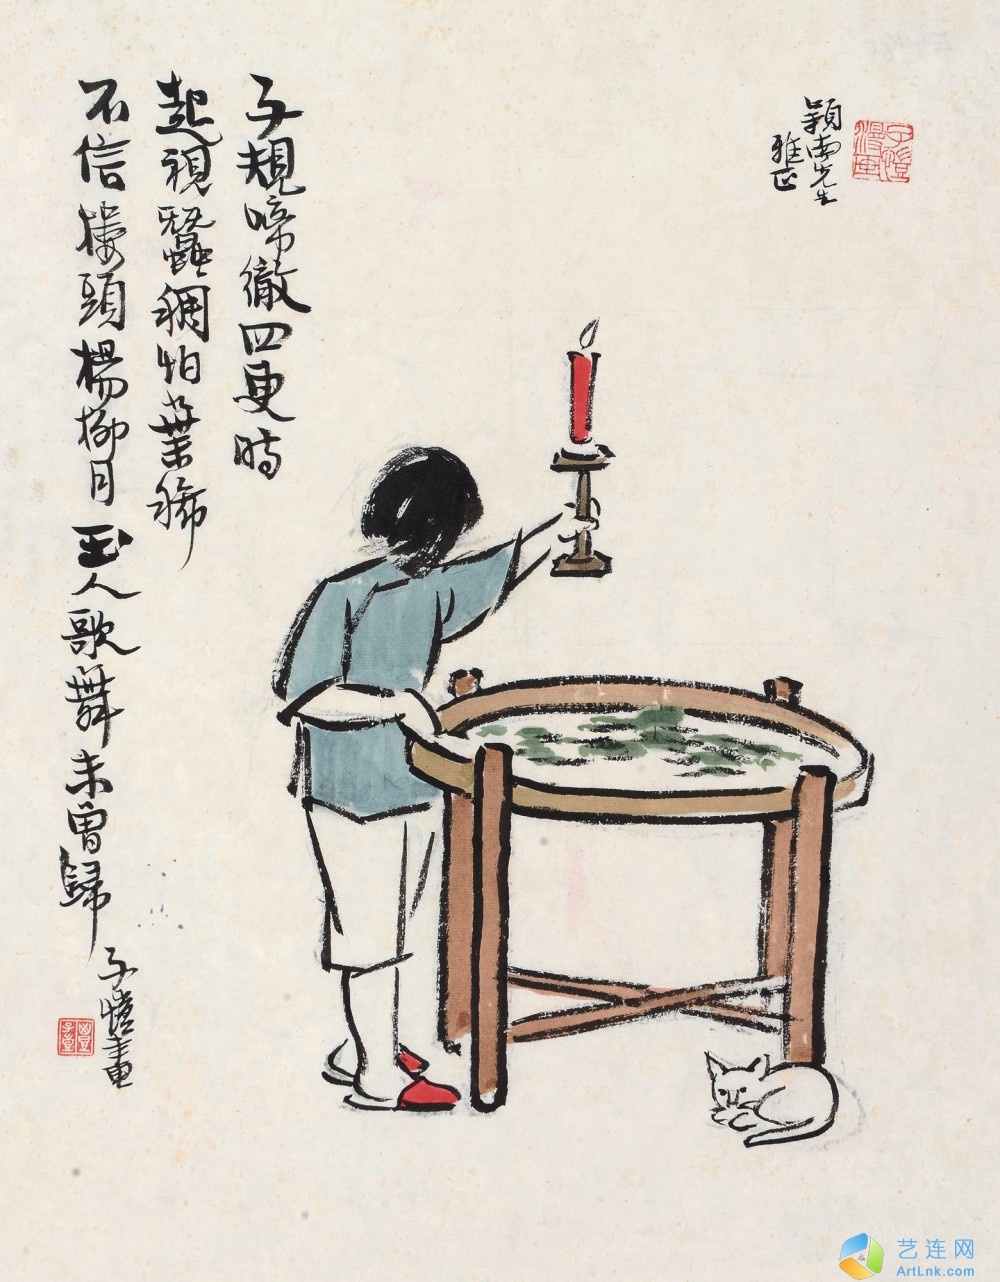 子規啼徹四更時
起視蠶稠怕葉稀
不信樓頭楊柳月
玉人歌舞未曾歸
子愷畫
豐子愷
穎南先生
雅正
子愷漫画
艺连网
ArtLnk.com